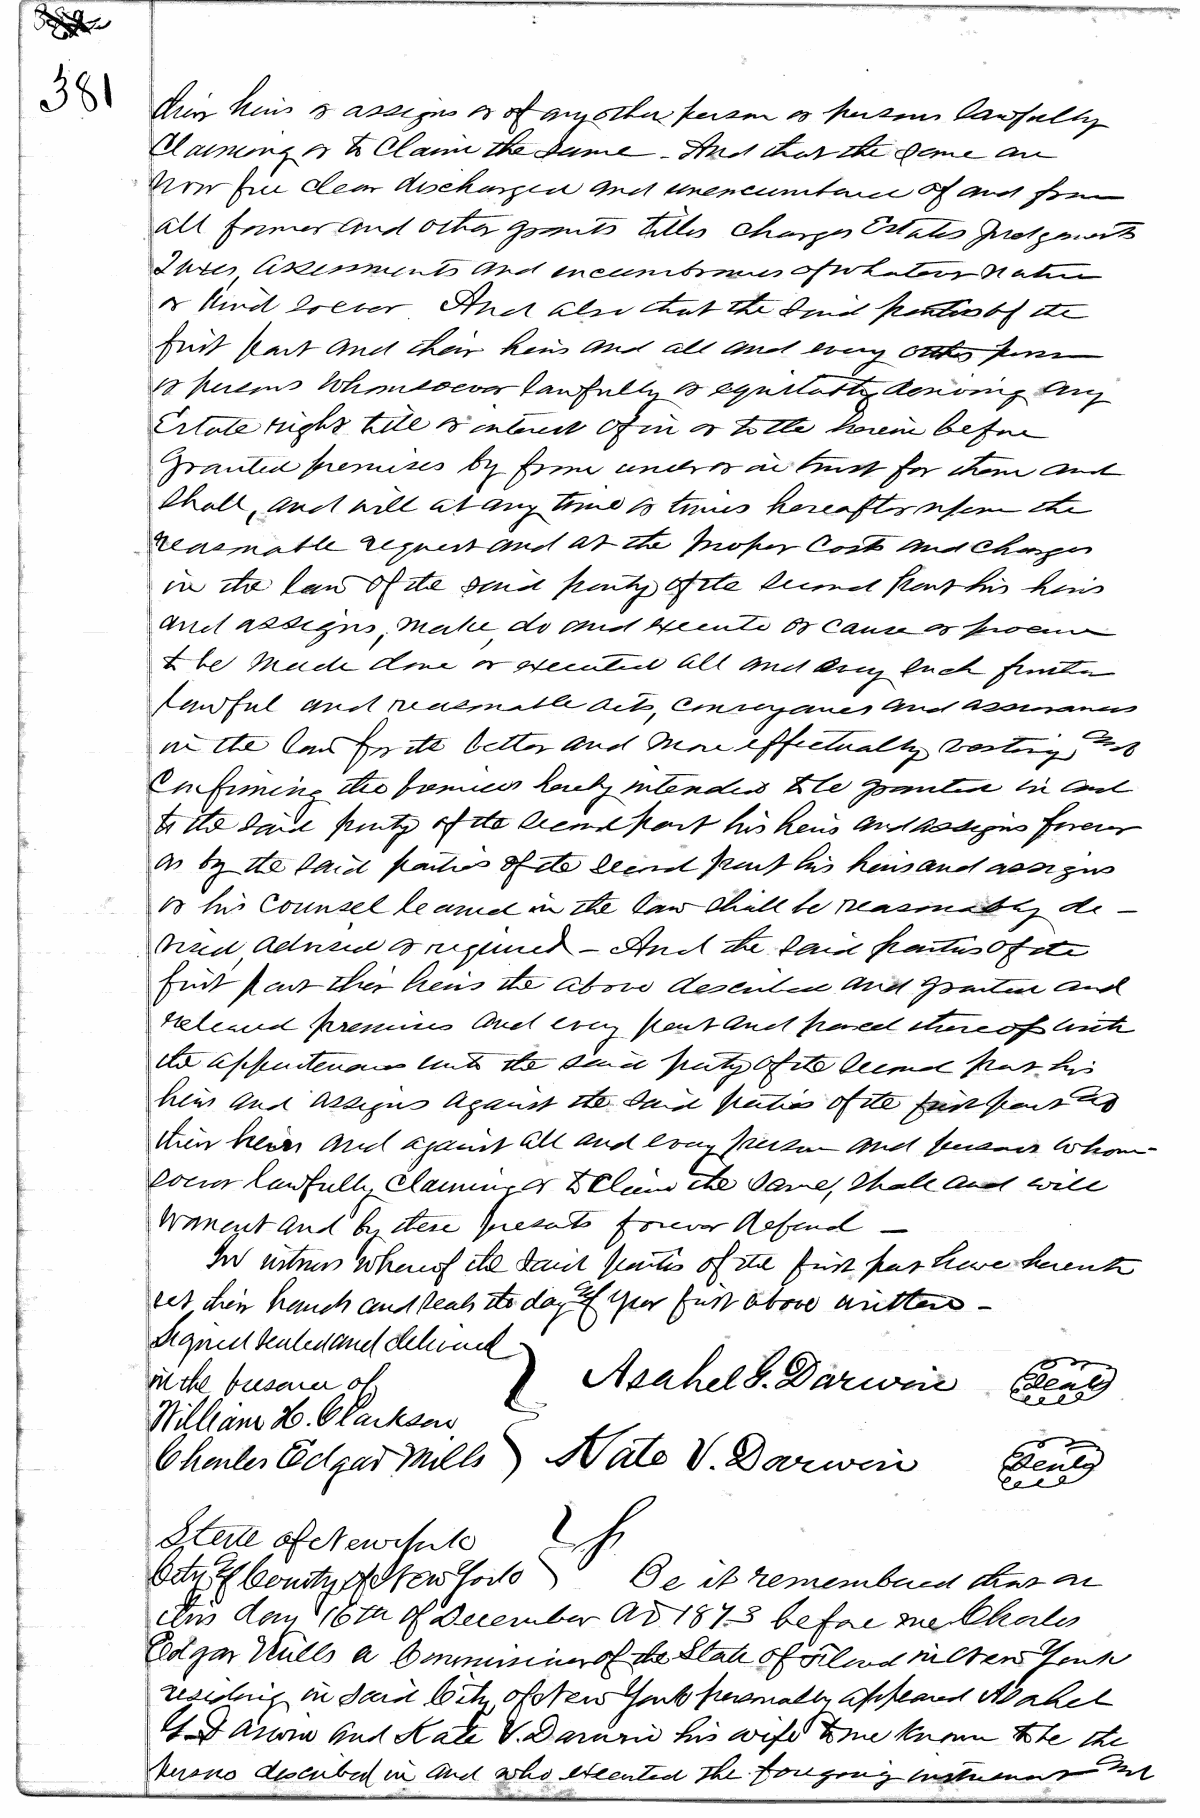 381
their heirs or assigns or of any other person or persons lawfully
Claiming or to Claim the same - And that the same are
Now free clear discharged and unencumbered of and from
all former and other grants titles charges Estates Judgements
Taxes, assessments and incumbrances of whatever nature
or kind soever. And also that the said parties of the
first part and their heirs and all and every other person
or persons whomsoever lawfully or equitably deriving any
Estate right title or interest of in or to the herein before
Granted premises by from under or in trust for them and
Shall, and will at any time or times hereafter upon the
reasonable request and at the proper Costs and charges
in the law of the said party of the second part his heirs
and assigns, make, do and execute or cause or procure
to be made done or executed all and every such further
lawful and reasonable acts, conveyances and assurances
in the law for the better and more effectually vesting and
Confirming the premises hereby intended to be granted in and
to the said party of the second part his heirs and assigns forever
as by the said parties of the second part his heirs and assigns
or his Counsel learned in the law shall be reasonably de-
vised, advised or required - And the said parties of the
first part their heirs the above described and granted and
released premises and every part and parcel thereof with
the appurtenances unto the said party of the second part his
heirs and assigns against the said parties of the first part and
their heirs and against all and every person and persons whom-
soever lawfully claiming or to Claim the same, shall and will
warrant and by these presents forever defend -
In witness whereof the said parties of the first part have hereunto
set their hands and seals the day & year first above written -
Signed sealed and delivered
in the presence of } Asahel G. Darwin Seal
William H. Clarkson
Charles Edgar Mills } Kate V. Darwin Seal
State of New York }
City & County of New York } Be it remembered that on
this day 16th of December AD 1873 before me Charles
Edgar Mills a Commissioner of the State of in New York
residing in said City of New York personally appeared Asahel
G. Darwin and Kate V. Darwin his wife to me known to be the
persons described in and who executed the foregoing instrument and